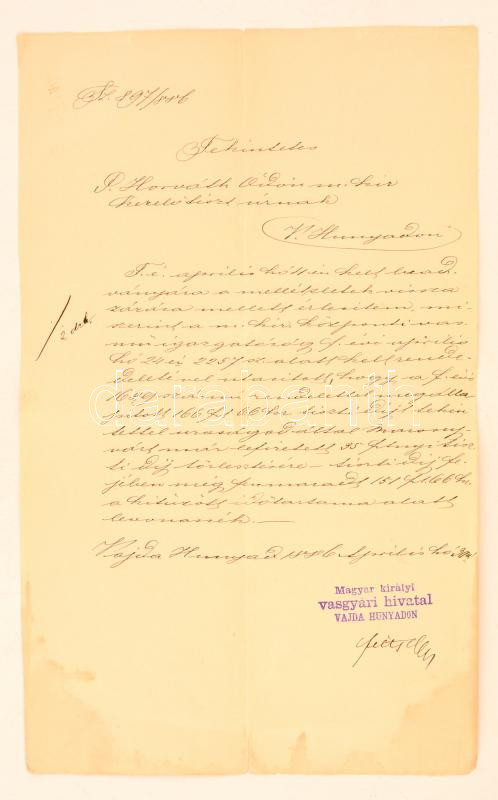 897/886
Tekintetes
P. Horváth Ödön m. kir
kezelőtiszt úrnak
V. Hunyadon
2 drb.
F. é. április hó én kelt bead-
ványára a mellékletek vissza
zárása mellett értesitem, mi-
szerint a m. kir. központi vas-
mű igazgatóság f. évi április
hó 24 én 2257 sz. alatt kelt rende-
letével utasitott, hogy a f. évi
számú rendelettel megálla-
pitott 166 ft 66 kr tiszti dij tekin-
tettel uraságod által
már lefizetett 35 ftnyi tisz-
ti dij törlesztésére – tiszti dij fe-
jében még fennmaradt 151 ft 66 kr.
a kitűzött időtartama alatt
levonassék. —
Vajda Hunyad 1886 Április hó
Magyar királyi
vasgyári hivatal
VAJDA HUNYADON
darabanth